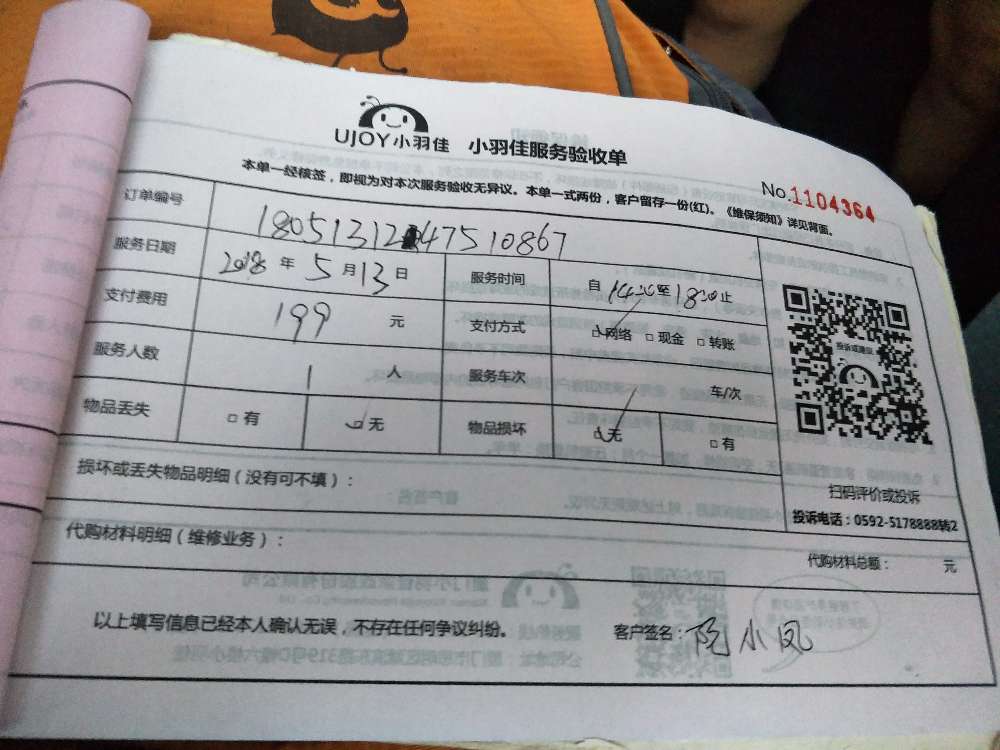 UJOY小羽佳 小羽佳服务验收单
No.1104364
本单一经核签，即视为对本次服务验收无异议。本单一式两份，客户留存一份(红)。《维保须知》详见背面。
订单编号 1805131247510867
服务日期 2018 年 5 月 13 日 服务时间 自 14:00 至 18:00 止
支付费用 199 元 支付方式 ☑网络 □现金 □转账
服务人数 1 人 服务车次 车/次
物品丢失 □有 ☑无 物品损坏 ☑无 □有
投诉或建议
损坏或丢失物品明细（没有可不填）：
扫码评价或投诉
投诉电话：0592-5178888转2
代购材料明细（维修业务）：
代购材料总额： 元
以上填写信息已经本人确认无误，不存在任何争议纠纷。 客户签名：阮小凤